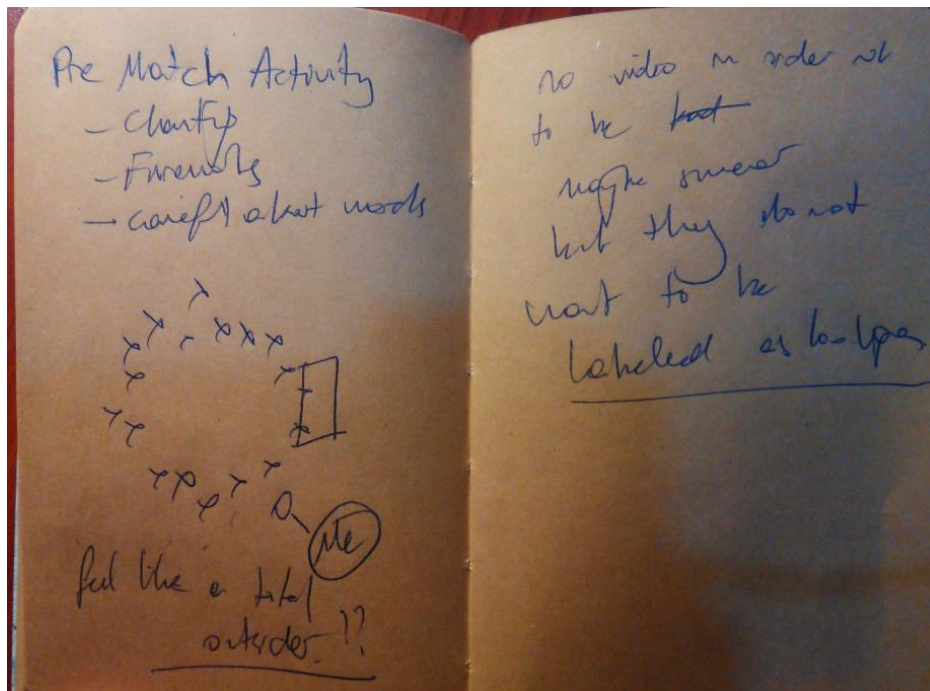 Pre Match Activity
- Charity
- Fireworks
→ careful about words
Me
feel like a total
outsider !?
no video in order not
to be
maybe swear
but they do not
want to be
labeled as hooligans